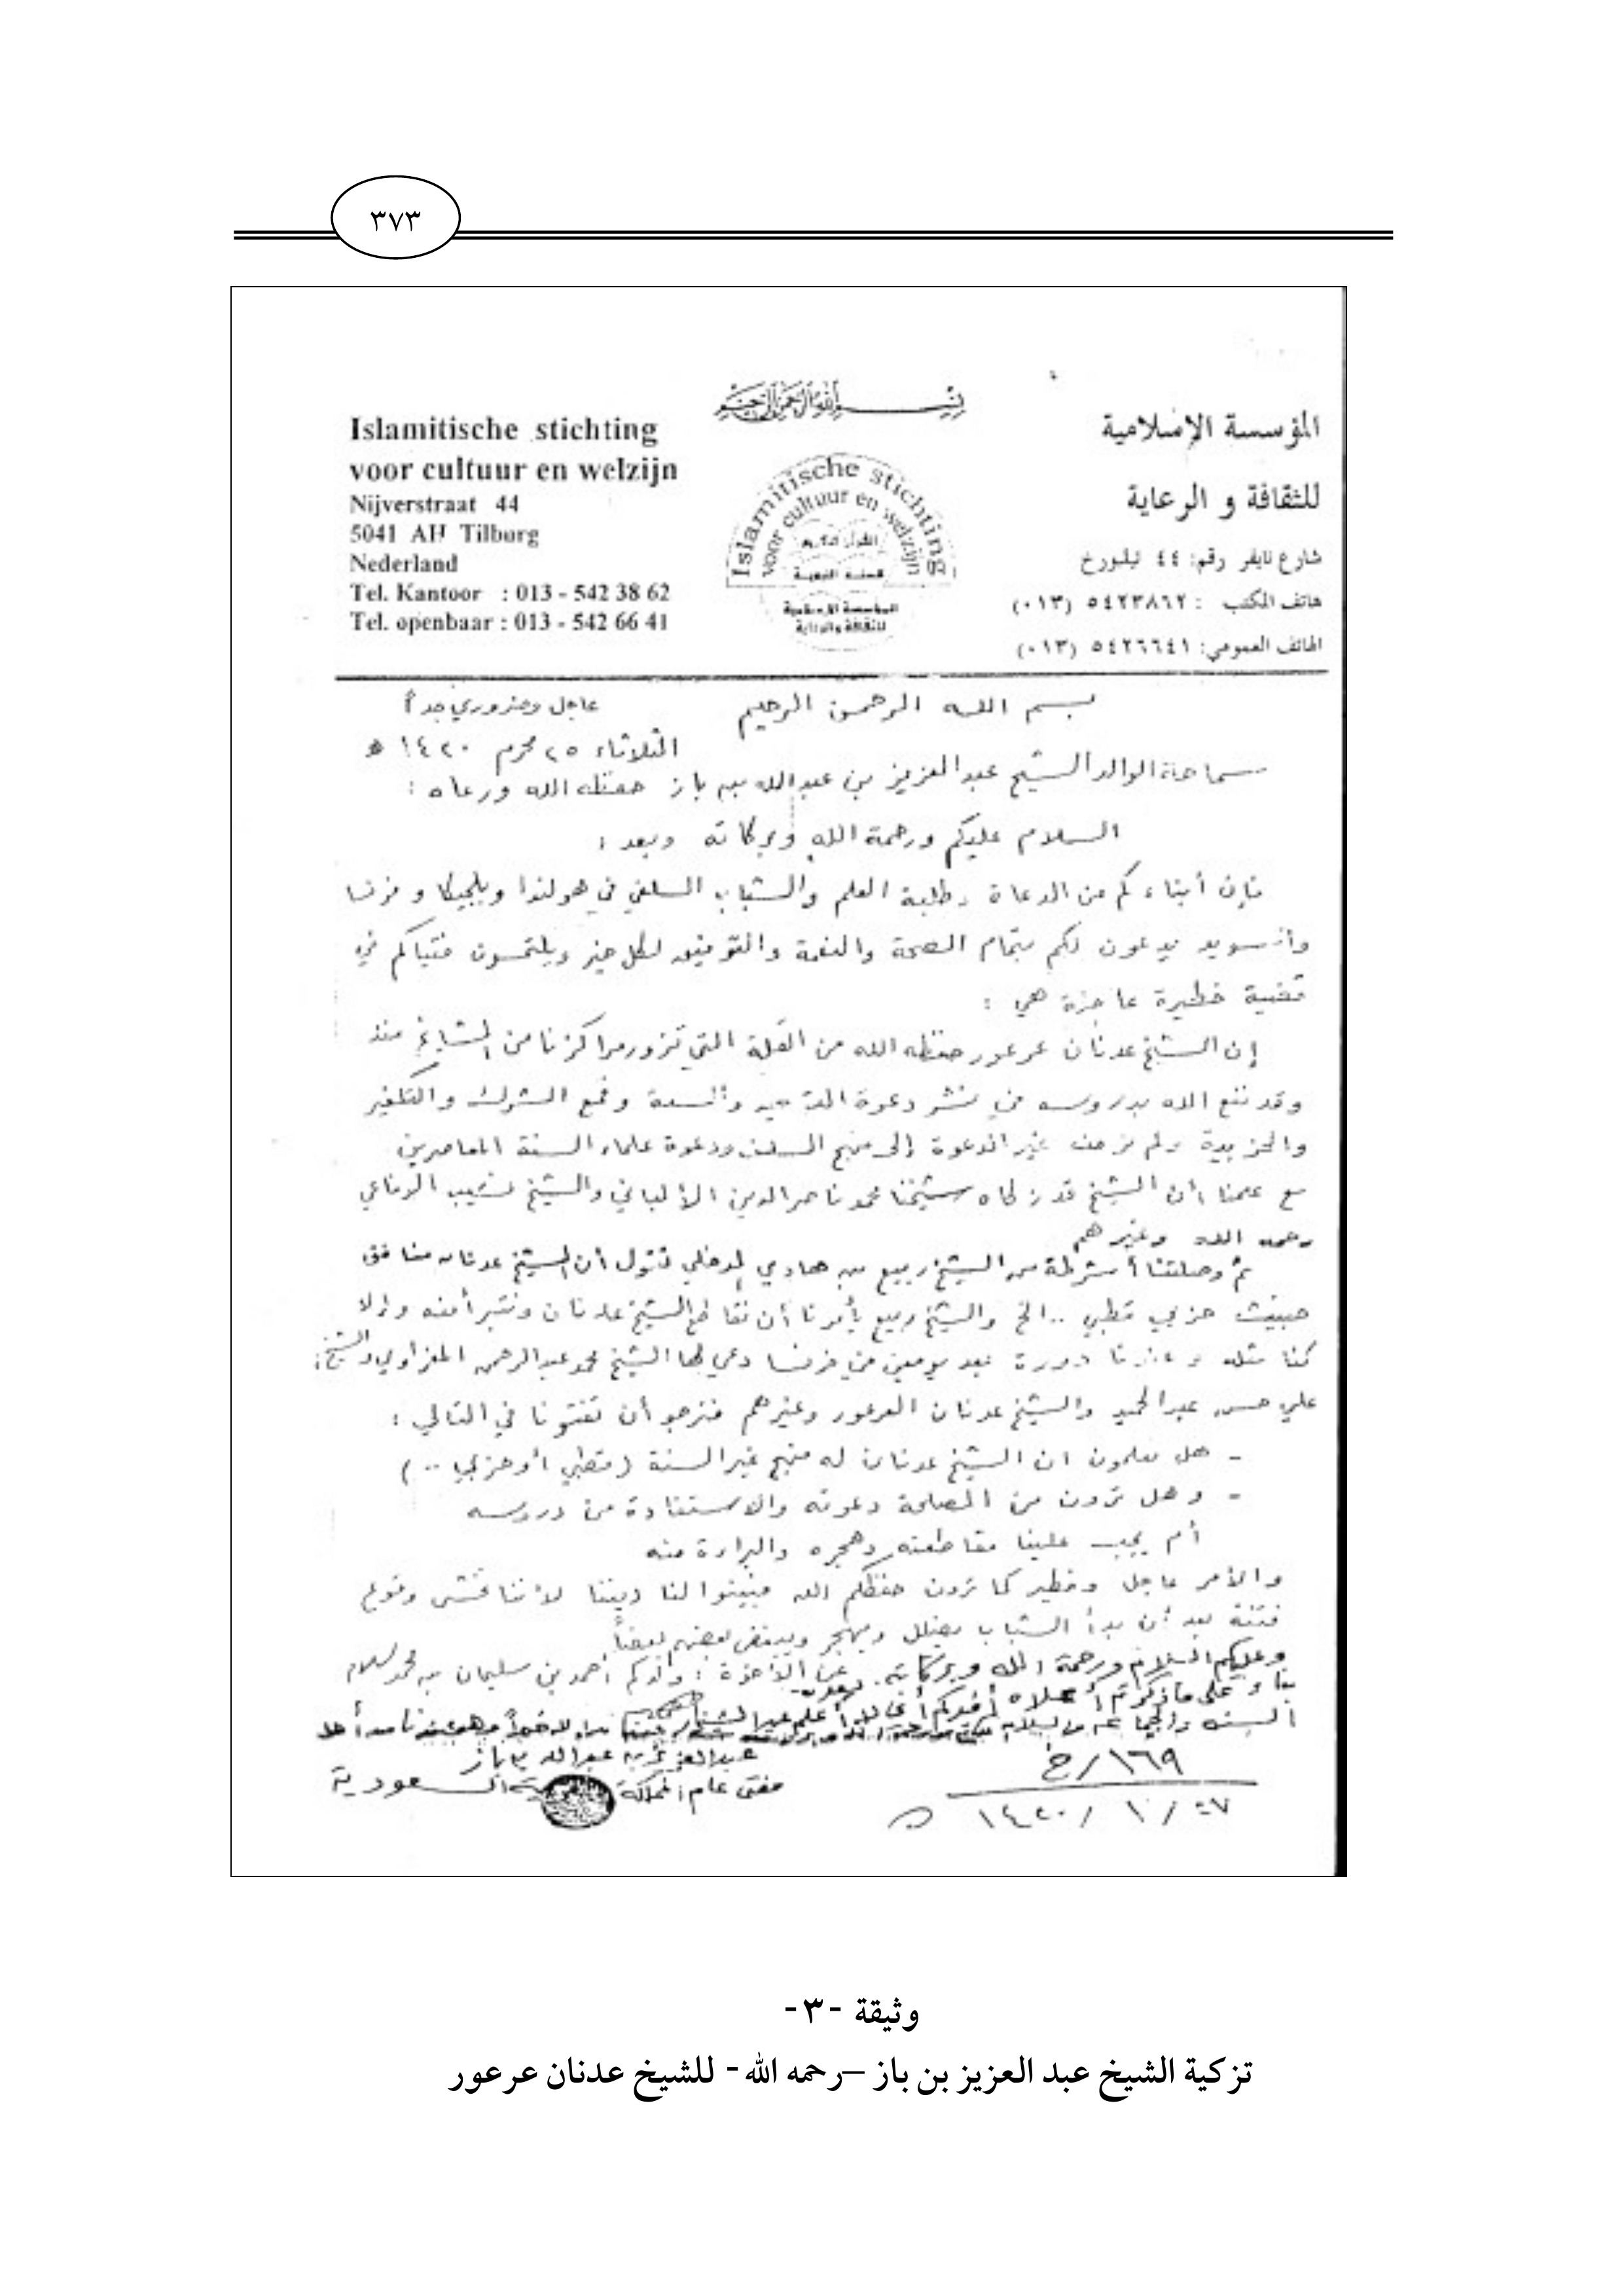 ٣٧٣
بسم الله الرحمن الرحيم
Islamitische stichting
voor cultuur en welzijn
Nijverstraat 44
5041 AH Tilburg
Nederland
Tel. Kantoor : 013 - 542 38 62
Tel. openbaar : 013 - 542 66 41
Islamitische stichting
voor cultuur en welzijn
المؤسسة الإسلامية
للثقافة والرعاية
المؤسسة الإسلامية
للثقافة و الرعاية
شارع نايفر رقم: ٤٤ تيلبورخ
هاتف المكتب : ٥٤٢٣٨٦٢ (٠١٣)
الهاتف العمومي: ٥٤٢٦٦٤١ (٠١٣)
بسم الله الرحمن الرحيم
عاجل وضروري جداً
الثلاثاء ٢٥ محرم ١٤٢٠ هـ
سماحة الوالد الشيخ عبد العزيز بن عبد الله بن باز حفظه الله ورعاه :
السلام عليكم ورحمة الله وبركاته وبعد :
فإن أبناءكم من الدعاة وطلبة العلم والشباب السلفي في هولندا وبلجيكا وفرنسا
والسويد يدعون لكم بتمام الصحة والنعمة والتوفيق لكل خير ويلتمسون فتياكم في
قضية خطيرة هي :
إن الشيخ عدنان عرعور حفظه الله من القلة التي تزور مراكزنا من المشايخ منذ
وقد نفع الله بدروسه في نشر دعوة التوحيد والسنة وقمع الشرك والتكفير
والحزبية ولم نر منه غير الدعوة إلى منهج السلف ودعوة علماء السنة المعاصرين
مع علمنا أن الشيخ قد زكاه شيخنا محمد ناصر الدين الألباني والشيخ نسيب الرفاعي
رحمه الله وغيرهم
ثم وصلتنا أشرطة من الشيخ ربيع بن هادي المدخلي تقول أن الشيخ عدنان منافق
خبيث حزبي قطبي ..الخ والشيخ ربيع يأمرنا أن نقاطع الشيخ عدنان ونتبرأ منه وإلا
كنا مثله وعندنا دورة بعد يومين في فرنسا دعي لها الشيخ محمد عبد الرحمن المغراوي والشيخ:
علي حسن عبد الحميد والشيخ عدنان العرعور وغيرهم فنرجو أن تفتونا في التالي :
- هل تعلمون ان الشيخ عدنان له منهج غير السنة (قطبي أو حزبي ..)
- وهل ترون من المصلحة دعوته والاستفادة من دروسه
أم يجب علينا مقاطعته وهجره والبراءة منه
والأمر عاجل وخطير كما ترون حفظكم الله فبينوا لنا ديننا لأننا نخشى وقوع
فتنة بعد أن بدأ الشباب يضلل ويهجر ويبغض بعضهم بعضاً
عن الأخوة : ولدكم أحمد بن سليمان
وعليكم السلام ورحمة الله وبركاته
بناء على ما ذكرتم أعلاه أفيدكم
السنة والجماعة
عبد العزيز بن عبد الله بن باز
مفتي عام المملكة العربية السعودية
١٦٩/خ
٢٧ / ١ / ١٤٢٠
وثيقة -٣-
تزكية الشيخ عبد العزيز بن باز –رحمه الله- للشيخ عدنان عرعور